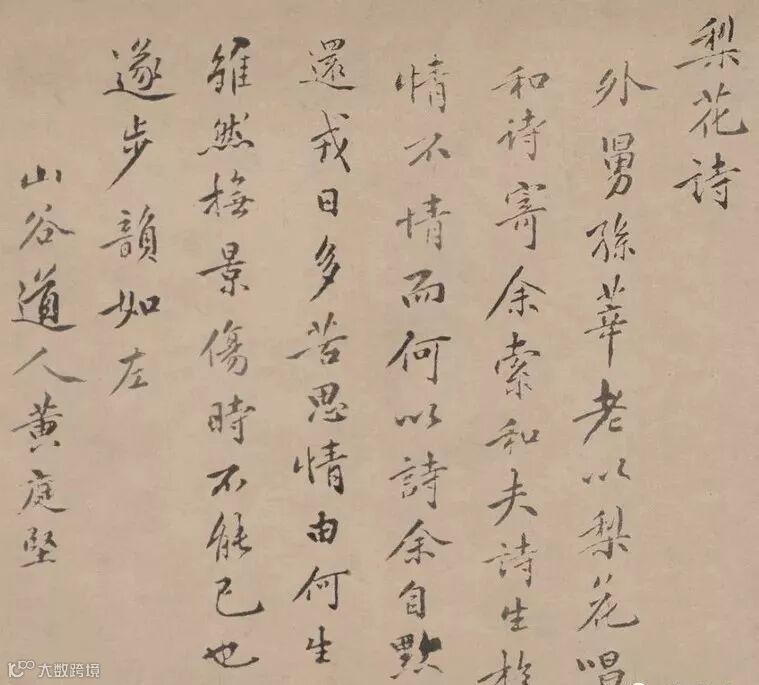 梨花詩
外舅孫莘老以梨花唱
和詩寄余索和夫詩生於
情不情而何以詩余自黔
還戎日多苦思情由何生
雖然撫景傷時不能已也
遂步韻如左
山谷道人黄庭堅
大数跨境